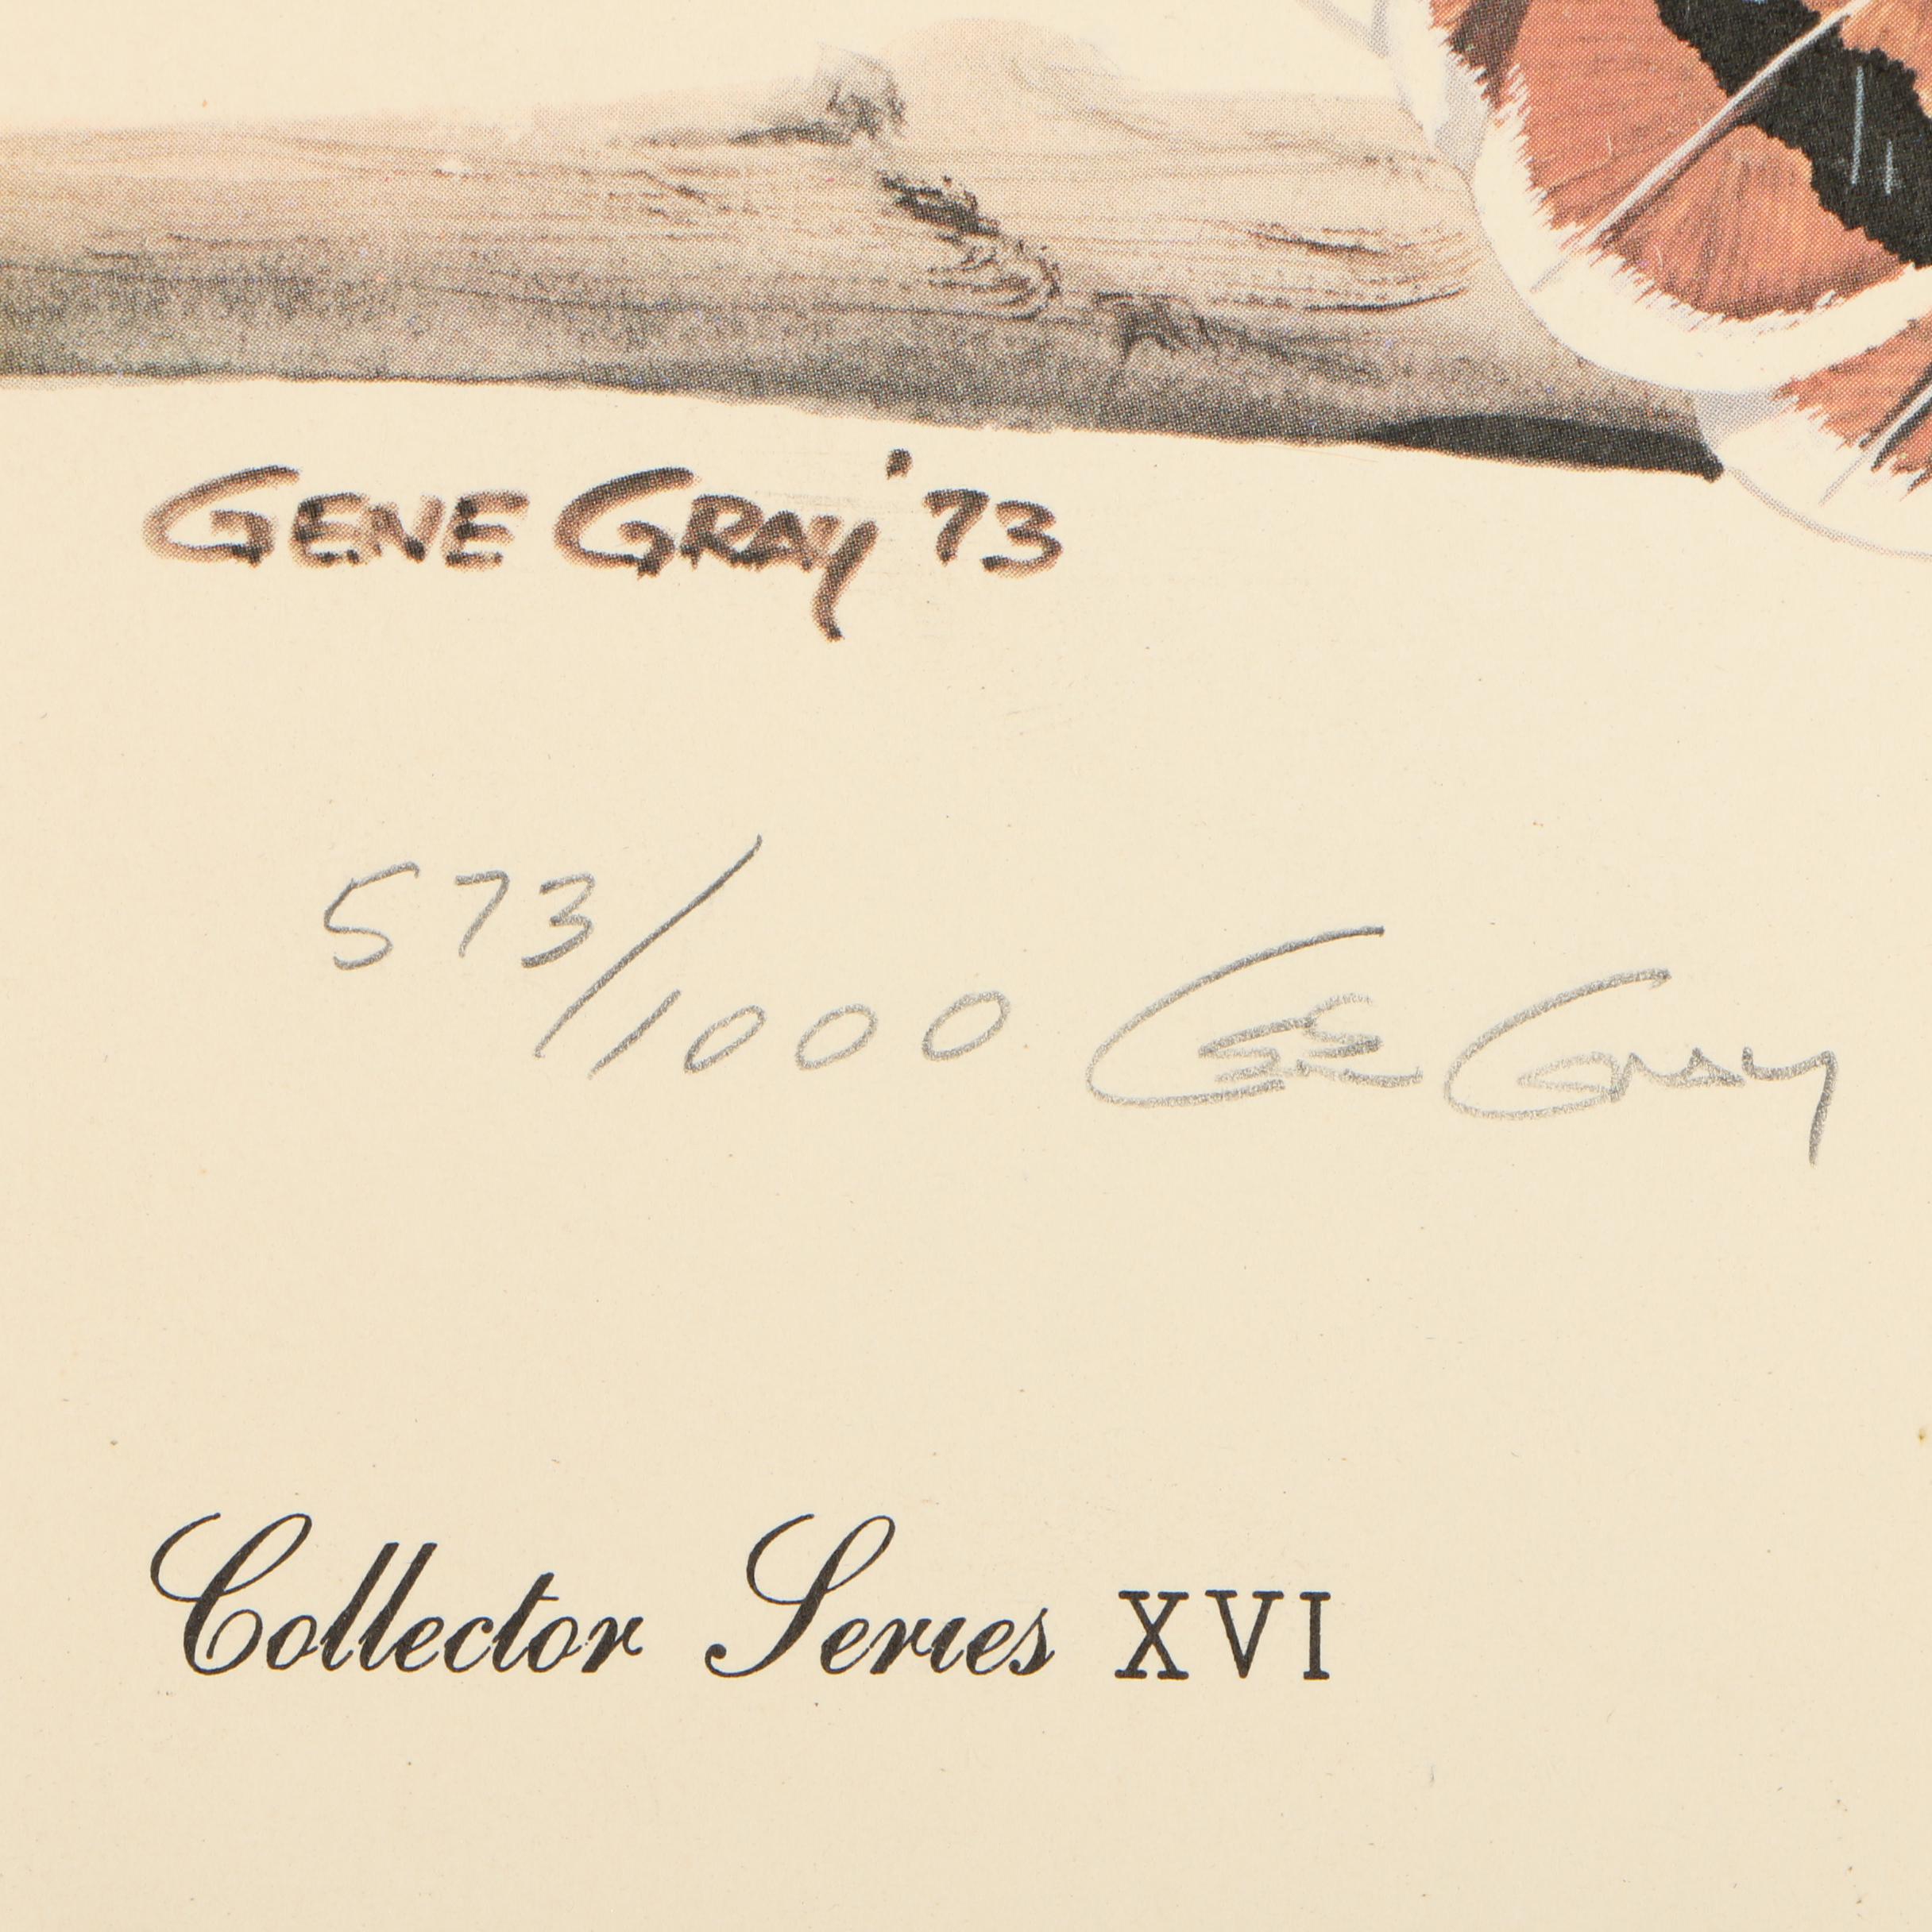 GENE GRAY '73
573/1000 Gene Gray
Collector Series XVI